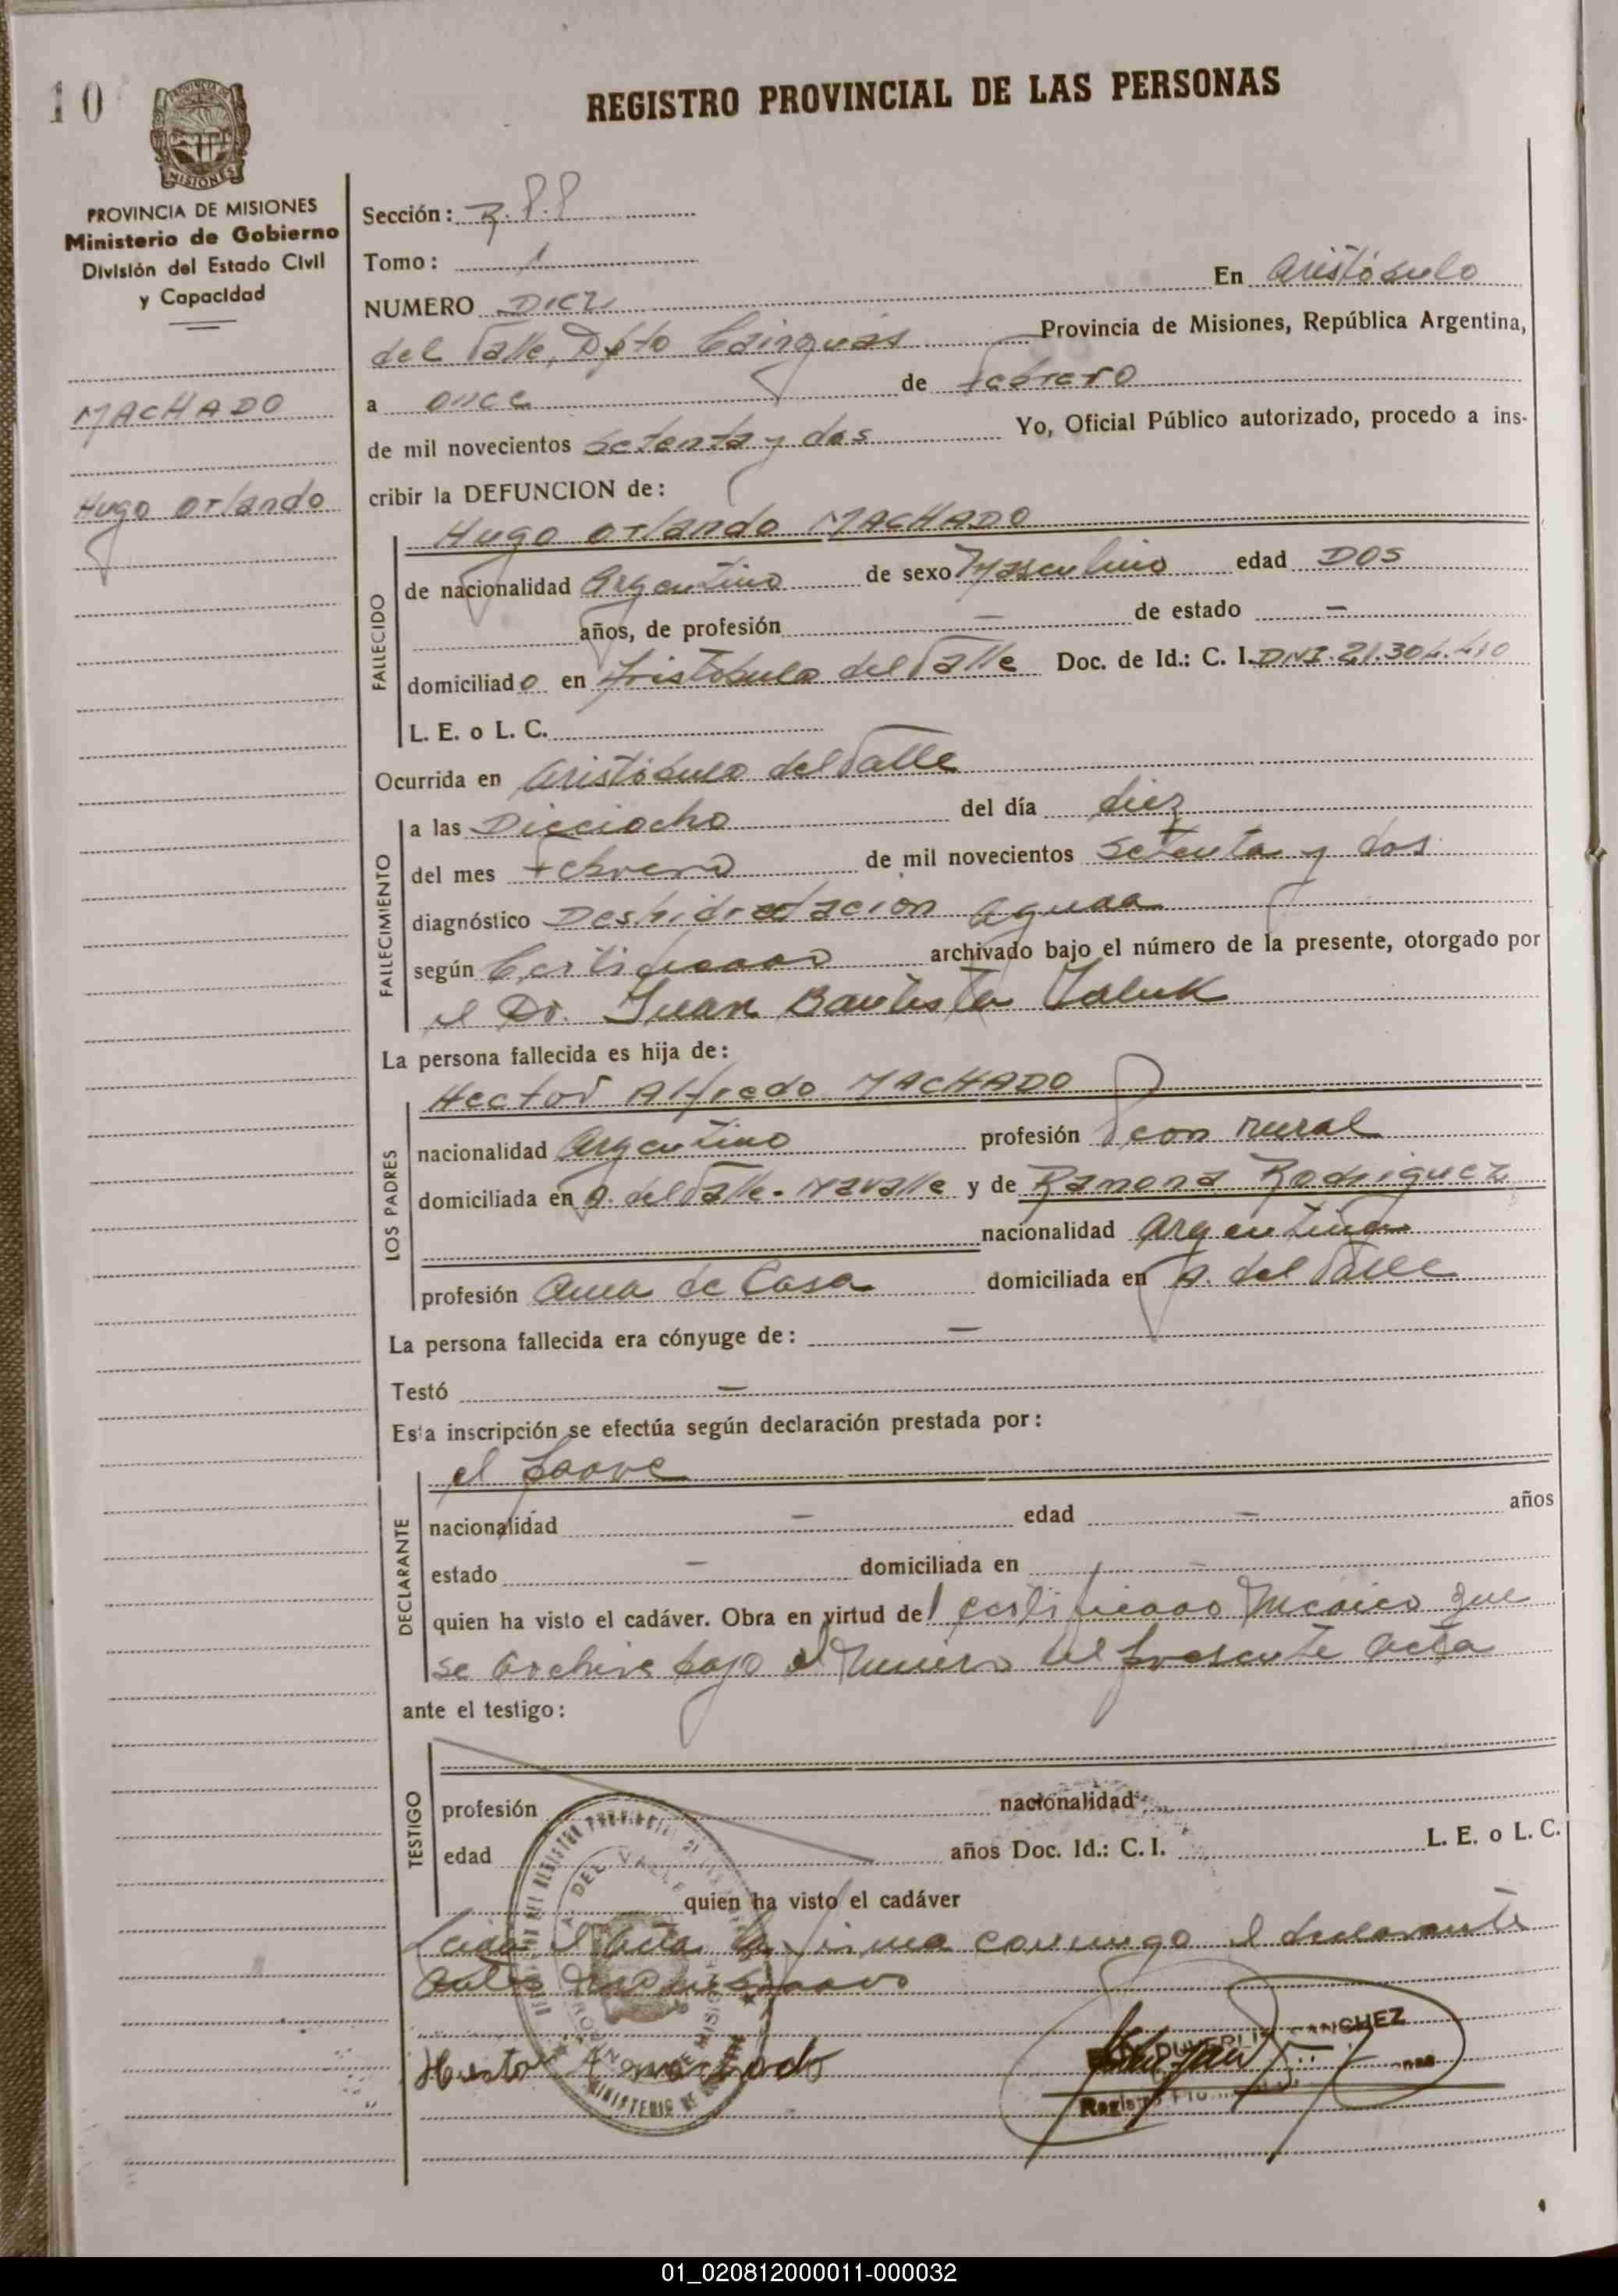 10
REGISTRO PROVINCIAL DE LAS PERSONAS
MISIONES
PROVINCIA DE MISIONES
Ministerio de Gobierno
División del Estado Civil
y Capacidad
MACHADO
Hugo Orlando
Sección:
Tomo: 1
NUMERO DIEZ En Aristóbulo
del Valle, Dpto Cainguás Provincia de Misiones, República Argentina,
a once de febrero
de mil novecientos setenta y dos Yo, Oficial Público autorizado, procedo a ins-
cribir la DEFUNCION de:
Hugo Orlando MACHADO
FALLECIDO
de nacionalidad Argentino de sexo Masculino edad DOS
años, de profesión — de estado —
domiciliado en Aristóbulo del Valle Doc. de Id.: C. I. DNI 21.304.410
L. E. o L. C.
Ocurrida en Aristóbulo del Valle
FALLECIMIENTO
a las Dieciocho del día diez
del mes Febrero de mil novecientos setenta y dos
diagnóstico Deshidratación aguda
según Certificado archivado bajo el número de la presente, otorgado por
el Dr. Juan Bautista
La persona fallecida es hija de:
Hector Alfredo MACHADO
LOS PADRES
nacionalidad Argentino profesión Peon rural
domiciliada en A. del Valle - y de Ramona Rodriguez
nacionalidad Argentina
profesión Ama de Casa domiciliada en A. del Valle
La persona fallecida era cónyuge de: —
Testó —
Esta inscripción se efectúa según declaración prestada por:
el padre
DECLARANTE
nacionalidad — edad — años
estado — domiciliada en —
quien ha visto el cadáver. Obra en virtud del certificado Médico que
se archiva bajo el número del presente acta
ante el testigo:
TESTIGO
profesión nacionalidad
edad años Doc. Id.: C. I. L. E. o L. C.
quien ha visto el cadáver
Leída el acta la firma conmigo el declarante
antes mencionado
Hector A Machado
SANCHEZ
01_020812000011-000032